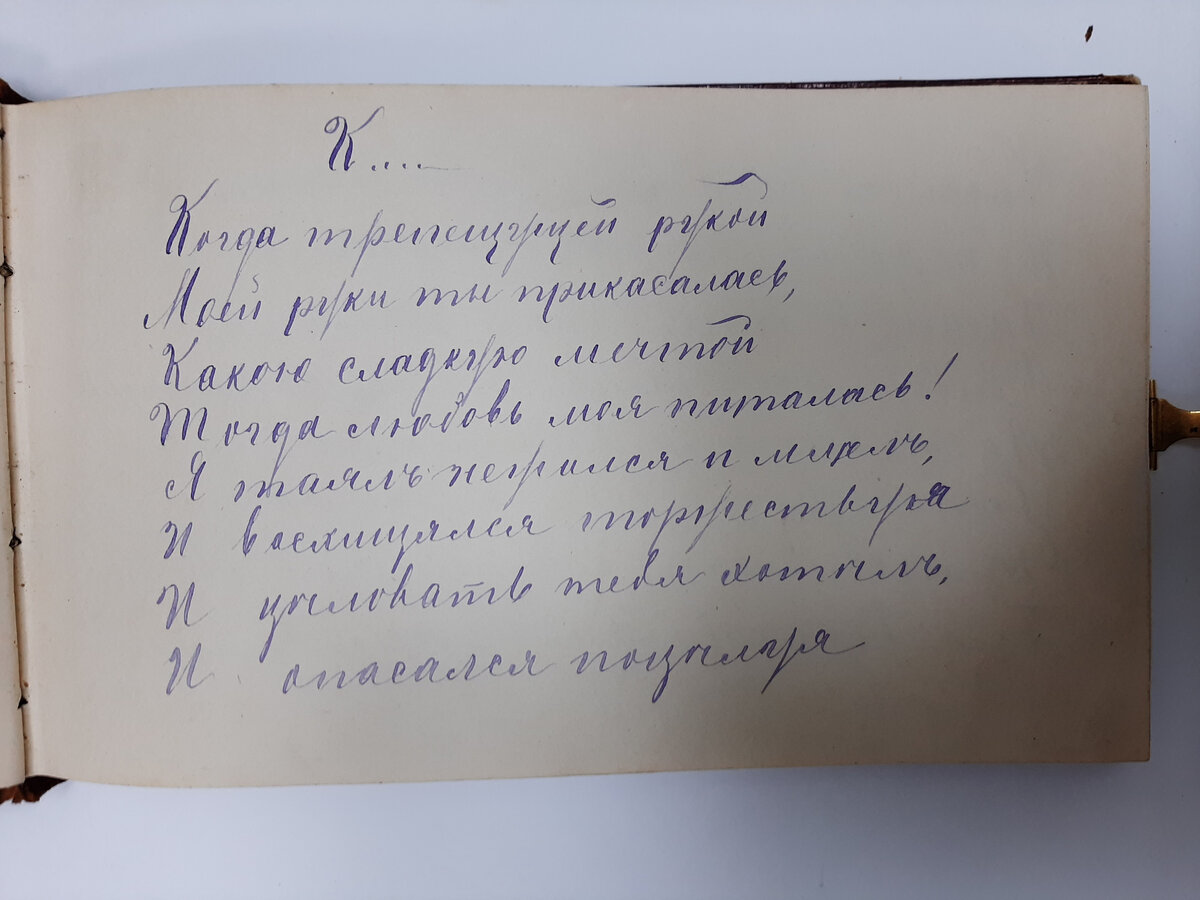 К....
Когда трепещущей рукой
Моей руки ты прикасалась,
Какою сладкую мечтой
Тогда любовь моя питалась!
Я таялъ нежился и млѣлъ,
И восхищялся торжествуя
И цѣловать тебя хотѣлъ,
И опасался поцѣлуя